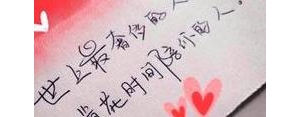 世上最奢侈的人
肯花时间陪你的人。